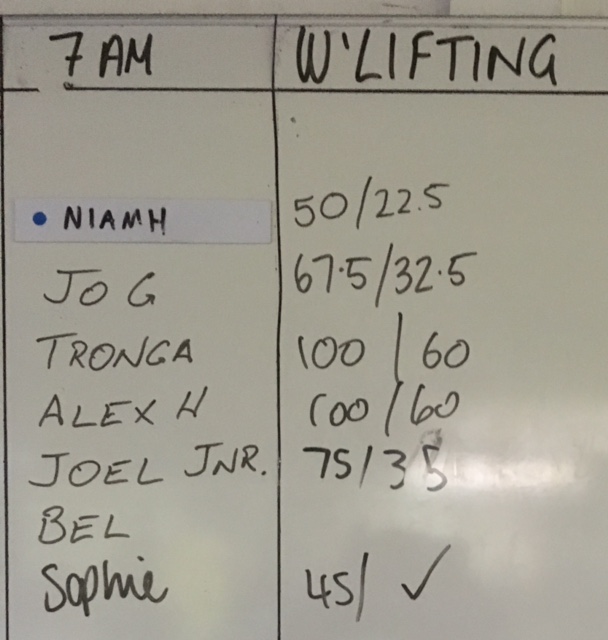 7 AM W'LIFTING
• NIAMH 50/22.5
JO G 67.5/32.5
TRONGA 100/60
ALEX H 100/60
JOEL JNR. 75/35
BEL
Sophie 45/ ✓